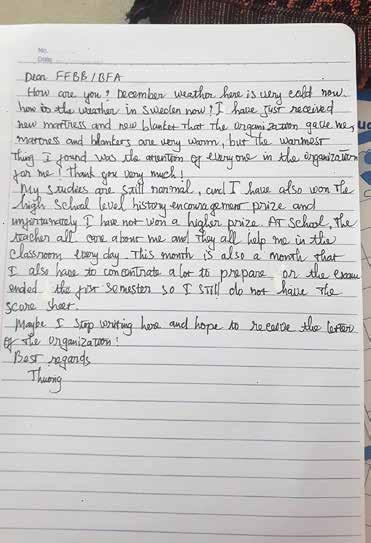 No.
Date
Dear FFBB/BFA
How are you? December weather here is very cold now
how is the weather in Sweden now? I have just received
new martress and new blanket that the organization gave me,
martress and blankets are very warm, but the warmest
thing I found was the attention of everyone in the organization
for me! Thank you very much!
My studies are still normal, and I have also won the
high school level history encouragement prize and
unfortunately I have not won a higher prize. At school, the
teacher all care about me and they all help me in the
classroom every day. This month is also a month that
I also have to concentrate a lot to prepare or the exam
ended the first semester so I still do not have the
score sheet.
Maybe I stop writing here and hope to receive the letter
of the organization!
Best regards
Thuong